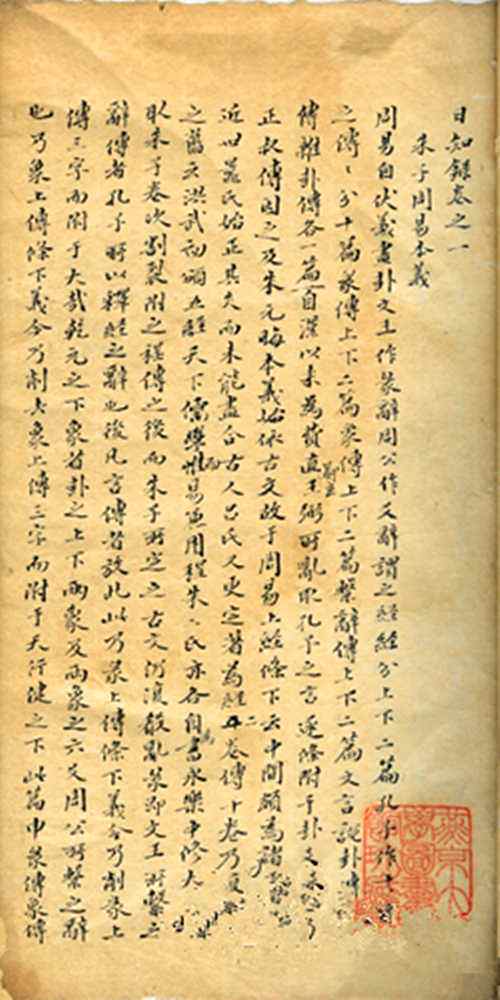 日知錄卷之一
朱子周易本義
周易自伏羲畫卦文王作彖辭周公作爻辭謂之經經分上下二篇孔子作十
之傳傳分十篇彖傳上下二篇象傳上下二篇繫辭傳上下二篇文言說卦
傳雜卦傳各一篇自漢以来為費直鄭玄王弼所亂取孔子之言逐條附于卦爻
正叔傳因之及朱元晦本義始依古文故于周易上經條下云中間頗為諸
近世晁氏始正其失而未能盡合古人吕氏又更定著為經二卷傳十卷乃復
之舊云洪武初頒五經天下儒學而易兼用程朱二氏亦各自為書永樂中修大
取朱子卷次割裂附之程傳之後而朱子所定之古文仍復殽亂彖即文王所繫之
辭傳者孔子所以釋經之辭也後凡言傳者放此此乃彖上傳條下義今乃削彖上
傳三字而附于大哉乾元之下象者卦之上下兩象及兩象之六爻周公所繫之辭
也乃象上傳條下義今乃削去象上傳三字而附于天行健之下此篇申彖傳象傳
燕京大